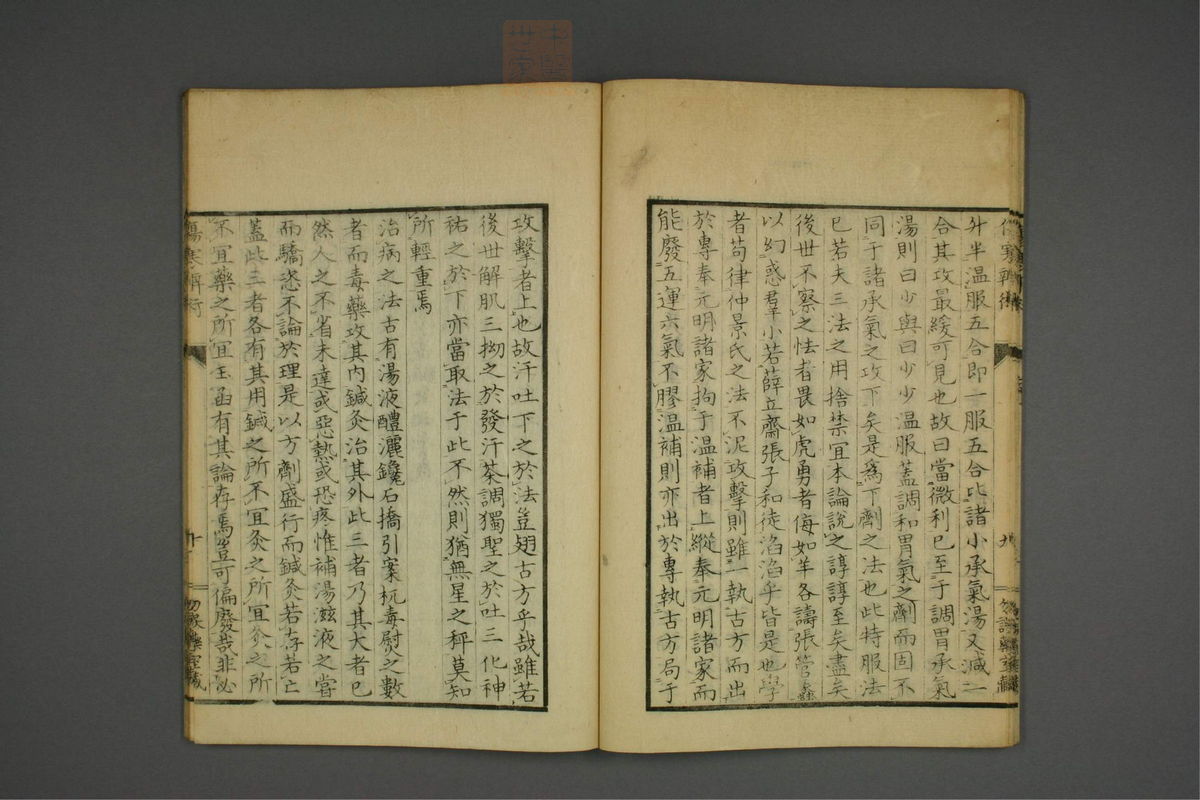 中醫
世家
傷寒辨術
九
升半温服五合即一服五合比諸小承氣湯又減一
合其攻最緩可見也故曰當微利已至于調胃承氣
湯則曰少與曰少少温服蓋調和胃氣之劑而固不
同于諸承氣之攻下矣是爲下劑之法也此特服法
已若夫三法之用捨禁宜本論說之諄諄至矣盡矣
後世不察之怯者畏如虎勇者侮如羊各譸張管蠡
以幻惑羣小若薛立齋張子和徒滔滔乎皆是也學
者苟律仲景氏之法不泥攻擊則雖一執古方而出
於專奉元明諸家拘于温補者上縱奉元明諸家而
能廢五運六氣不膠温補則亦出於專執古方局于
攻擊者上也故汗吐下之於法豈翅古方乎哉雖若
後世解肌三拗之於發汗茶調獨聖之於吐三化神
祐之於下亦當取法于此不然則猶無星之秤莫知
所輕重焉
治病之法古有湯液醴灑鑱石撟引案杌毒熨之數
者而毒藥攻其內鍼灸治其外此三者乃其大者已
然人之不省未達或惡熱或恐疼惟補湯滋液之嘗
而驕恣不論於理是以方劑盛行而鍼灸若存若亡
蓋此三者各有其用鍼之所不宜灸之所宜灸之所
不宜藥之所宜玉函有其論存焉豈可偏廢哉非必
傷寒辨術
十